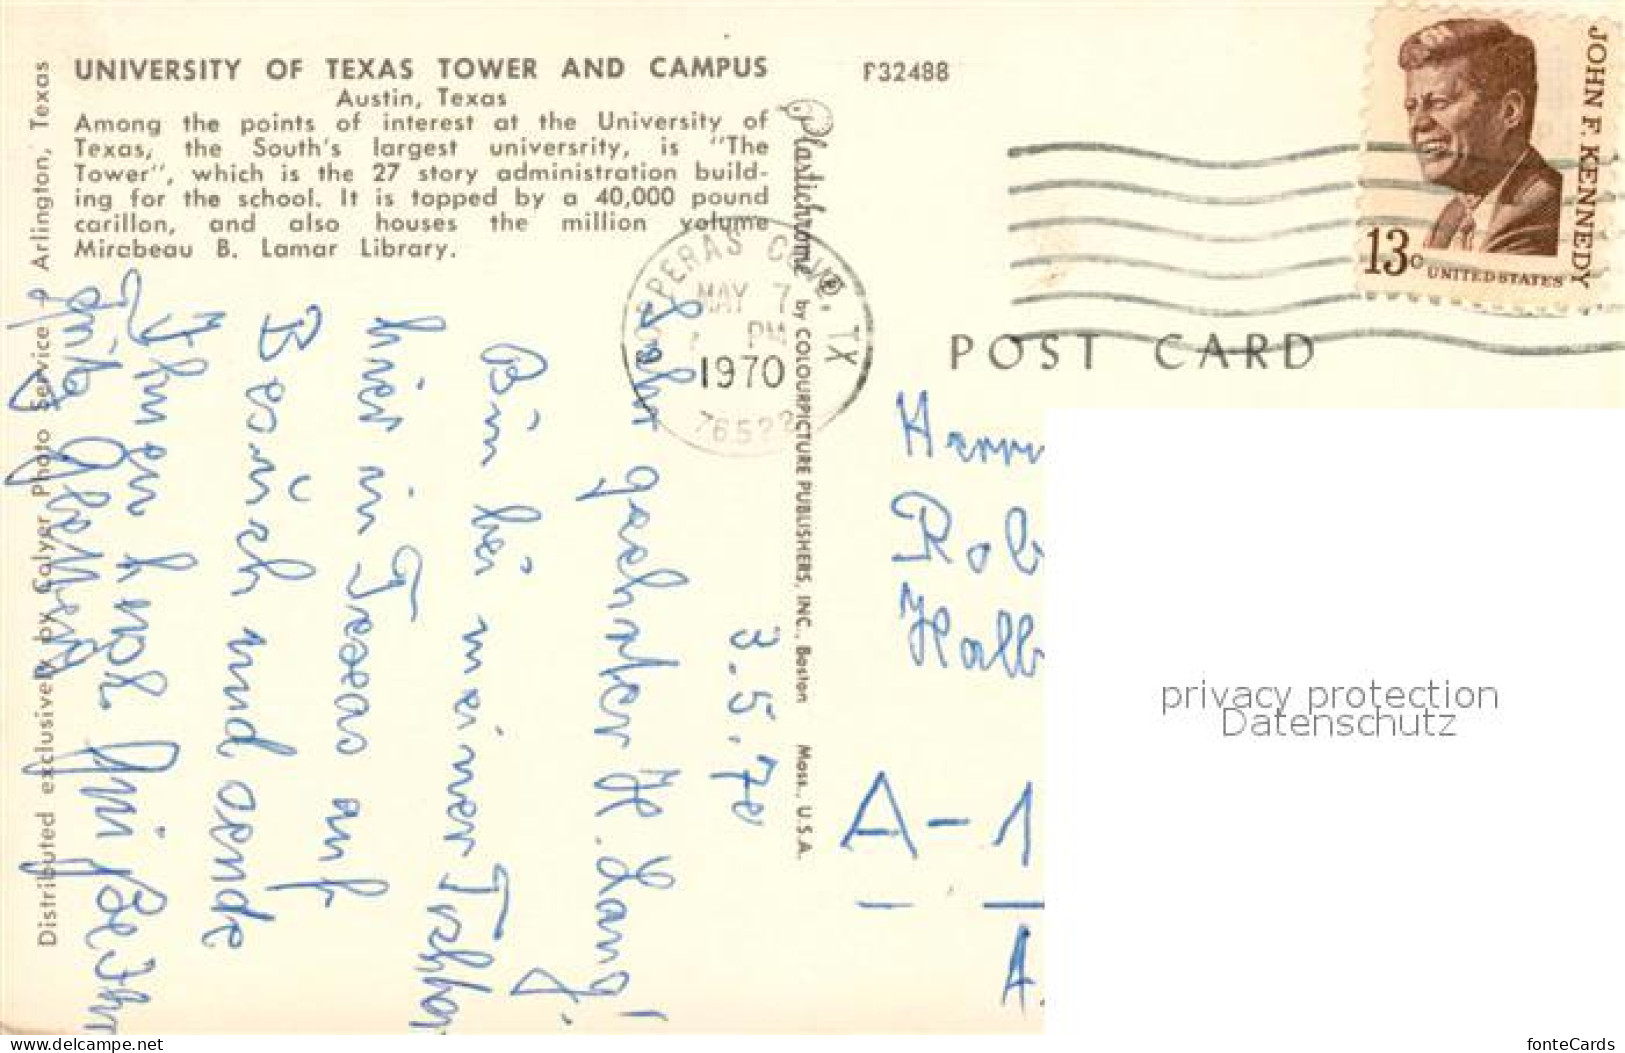 UNIVERSITY OF TEXAS TOWER AND CAMPUS
Austin, Texas
Among the points of interest at the University of
Texas, the South's largest universrity, is "The
Tower", which is the 27 story administration build-
ing for the school. It is topped by a 40,000 pound
carillon, and also houses the million volume
Mirabeau B. Lamar Library.
F32488
Distributed exclusively by Colyer Photo Service, Arlington, Texas
Plastichrome ® by COLOURPICTURE PUBLISHERS, INC., Boston Mass., U.S.A.
COPPERAS COVE, TX
MAY 7
PM
1970
7652
JOHN F. KENNEDY
13c UNITED STATES
POST CARD
3.5.70
Sehr geehrter H. Lang!
Bin bei meiner Tochter
hier in Texas auf
Besuch und sende
Ihnen
Herrn
Rob
Hallb
A-1
A.
privacy protection
Datenschutz
www.delcampe.net
fonteCards